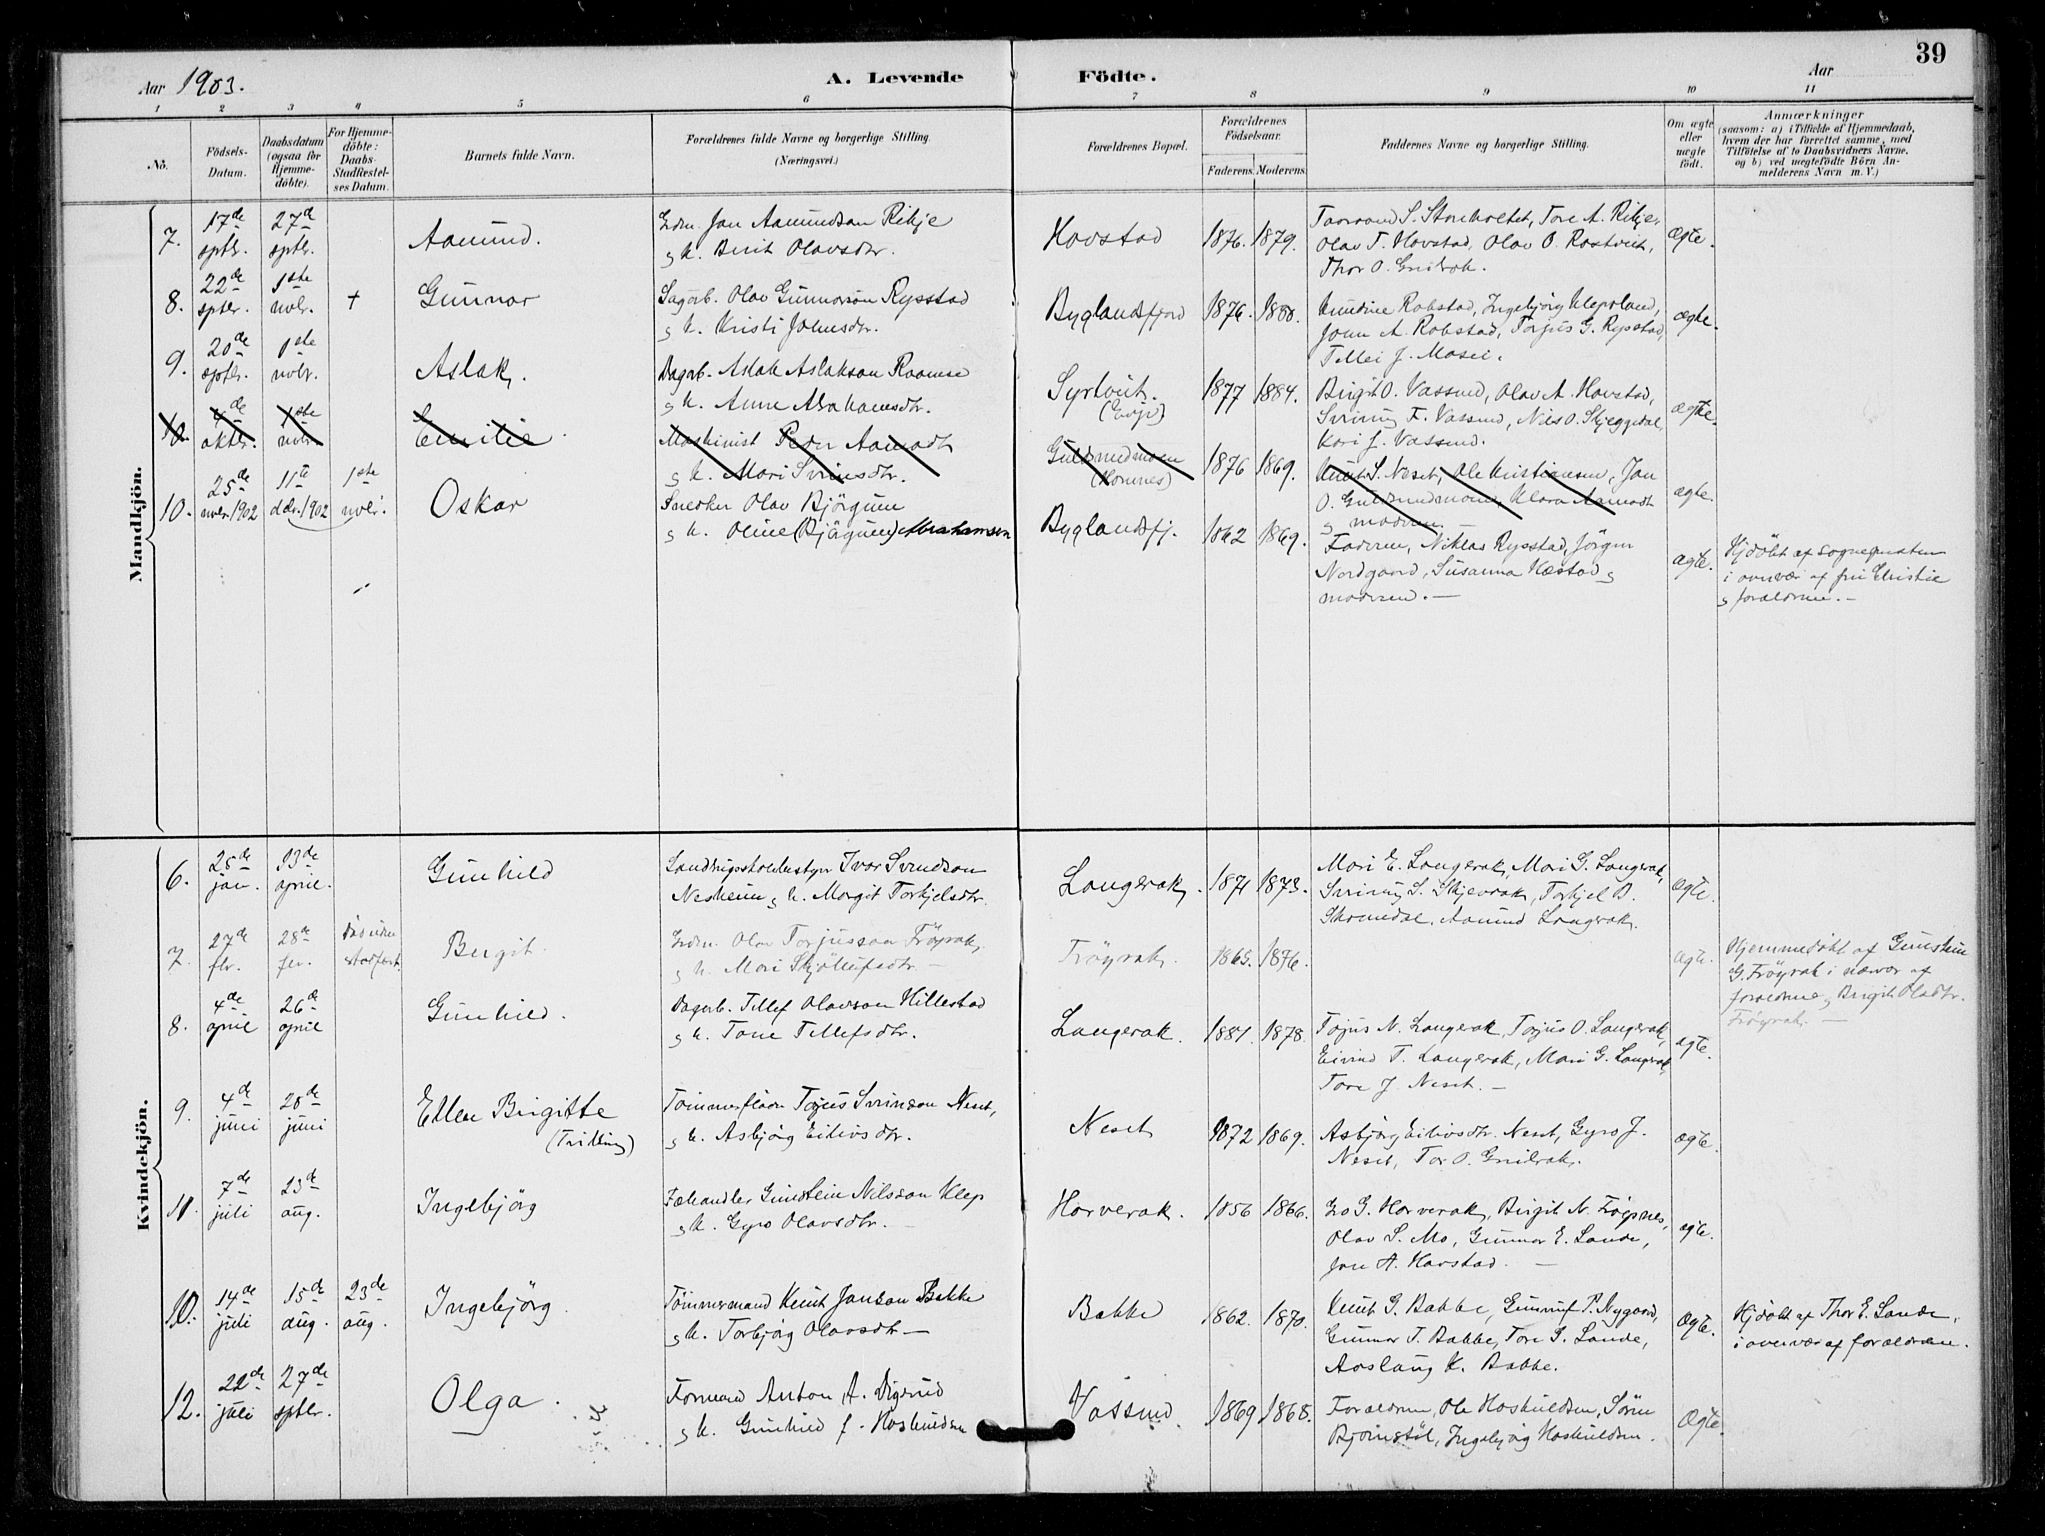 39
Aar 1903.
A. Levende Födte.
Aar
1 2 3 4 5 6 7 8 9 10 11
No.
Födsels-Datum.
Daabsdatum (ogsaa for Hjemme-döbte).
For Hjemme-döbte: Daabs-Stadfæstel-ses Datum.
Barnets fulde Navn.
Forældrenes fulde Navne og borgerlige Stilling. (Næringsvei.)
Forældrenes Bopæl.
Forældrenes Födselsaar.
Faderens. Moderens.
Faddernes Navne og borgerlige Stilling.
Om ægte eller uægte födt.
Anmærkninger (saasom: a) i Tilfælde af Hjemmedaab, hvem der har forrettet samme, med Tilföielse af to Daabsvidners Navne. og b) ved uægtefödte Börn An-melderens Navn m. V.)
Mandkjön.
7. 17de sptbr. 27de sptbr. Aamund.
Jon Aamundson Rike
og h. Birit Olavsdtr.
Hovstad 1876. 1879.
Taraand S. Storeholtet, Tore A. Rike,
Olav T. Hovstad, Olav O. Rostveit,
Thor O. Greibrok.
ægte.
8. 22de sptbr. 1ste novbr. + Gunnar
Dagarb. Olav Gunnarson Rysstad
og h. Kristi Johnsdtr.
Byglandsfjord 1876. 1880.
Knudine Robstad, Ingebjörg Klepsland,
Jonn A. Robstad, Torjus G. Rysstad,
Tellei J. Mosei.
ægte.
9. 20de sptbr. 1ste novbr. Aslak.
Dagarb. Aslak Aslakson
og h. Anne Abrahamsdtr.
Syrtveit. (Evje) 1877 1884.
Birgit O. Vassend, Olav A. Hovstad,
Sveinung F. Vassend, Nils O. Skjeggedal,
Kari J. Vassend.
ægte.
10. 4de oktbr. 1ste novbr. Emilie
Maskinist Peder Aamodt
og h. Mari Sveinsdtr.
Guldsmedmoen (Hornnes) 1876 1869.
Knut S. Neset, Ole Kristiansen, Jon
O. Guldsmedmoen, Klara Aamodt
og moderen.
ægte.
10. 25de novbr. 1902 11te dcbr. 1902 1ste novbr. Oskar
Snedker Olav Björgum
og h. Oline (Björgum) Abrahamsen
Byglandsfj. 1862 1869.
Faderen, Niklas Rysstad, Jörgen
Nordgaard, Susanna Kæstad og
moderen. —
ægte.
Hjdöbt af sognepresten
i overvær af frk Christie
og forældrene. —
Kvindekjön.
6. 25de jan. 13de april. Gunhild
Landhandelsbestyrer Ivar Svendson
Nesheim og h. Margit Torkjelsdtr.
Langerak. 1871 1873.
Mari E. Langerak, Mari G. Langerak,
Sveinung S. Skjevrak, Torkjel B.
Skomedal, Aamund Langerak.
ægte.
7. 27de fbr. 28de fbr. Död uden stadfæst. Birgit.
Olav Torjusson Fröyrak,
og h. Mari Skjöllufsdtr. —
Fröyrak. 1865. 1876.
ægte.
Hjemmedöbt af Gunstein
G. Fröyrak i nærvær af
forældrene og Birgit Olsdtr.
Fröyrak. —
8. 4de april 26de april Gunhild.
Dagarb. Tellef Olavson Hillestad
og h. Tone Tellefsdtr.
Langerak. 1881. 1878.
Tojus N. Langerak, Torjus O. Langerak,
Eivind T. Langerak, Mari G. Langerak,
Tore J. Neset. —
ægte.
9. 4de juni 28de juni Ellen Birgitte (Tvilling)
Tömmerfløder Torjus Sveinson Neset,
og h. Asbjörg Eilivsdtr.
Neset 1872 1869.
Asbjörg Eilivsdtr. Neset, Gyro J.
Neset, Tor O. Greibrok.
ægte.
11. 7de juli 23de aug. Ingebjörg
Fæhandler Gunstein Nilsson Klep
og h. Gyro Olavsdtr. —
Horverak. 1856 1866.
G. Horverak, Birgit N. Fröysnes,
Olav S. Mo, Gunnar E. Lande,
Jon A. Hovstad. —
ægte.
10. 14de juli 15de aug. 23de aug. Ingebjörg.
Tömmermand Knut Jonson Bakke
og h. Torbjörg Olavsdtr —
Bakke 1862. 1870.
Knut G. Bakke, Gunnuf P. Nygaard,
Gunnar T. Bakke, Tore S. Lande,
Aaslaug K. Bakke.
Ægte.
Hjdöbt af Thor E. Lande,
i overvær af forældrene.
12. 22de juli 27de sptbr. Olga.
Formand Anton A. Digerud
og h. Gunhild f. Hoskuldsen
Vassend. 1869 1868.
Forældrene, Ole Hoskuldsen, Sören
Björnestöl, Ingebjörg Hoskuldsen.
Ægte.